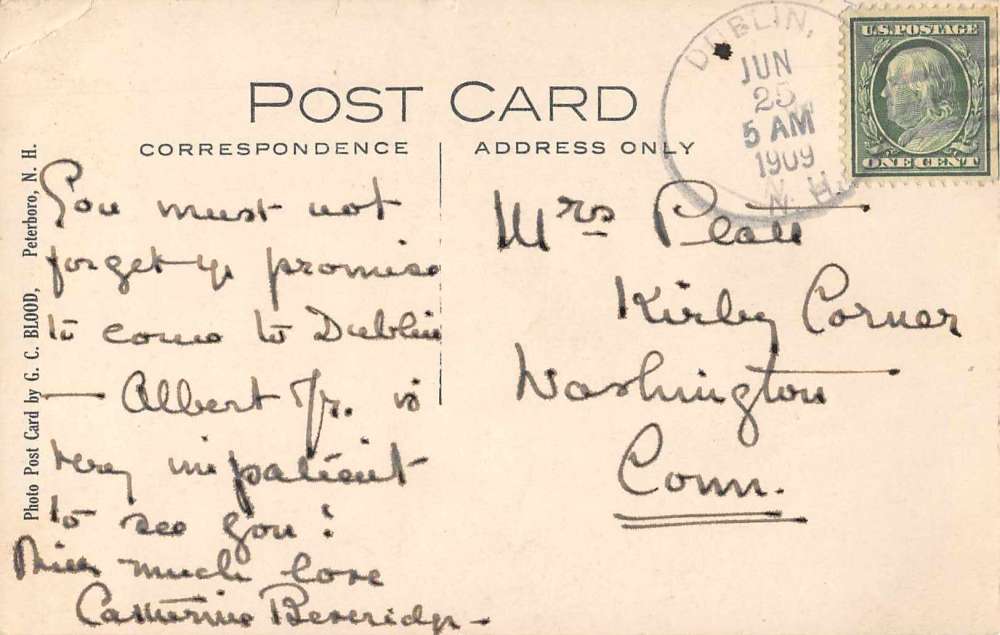 POST CARD
CORRESPONDENCE
ADDRESS ONLY
DUBLIN,
JUN
25
5 AM
1909
N. H.
U.S. POSTAGE
ONE CENT
Photo Post Card by G. C. BLOOD, Peterboro, N. H.
You must not
forget yr promise
to come to Dublin
— Albert Jr. is
very impatient
to see you!
With much love
Catherine Beveridge -
Mrs Platt
Kirby Corner
Washington
Conn.